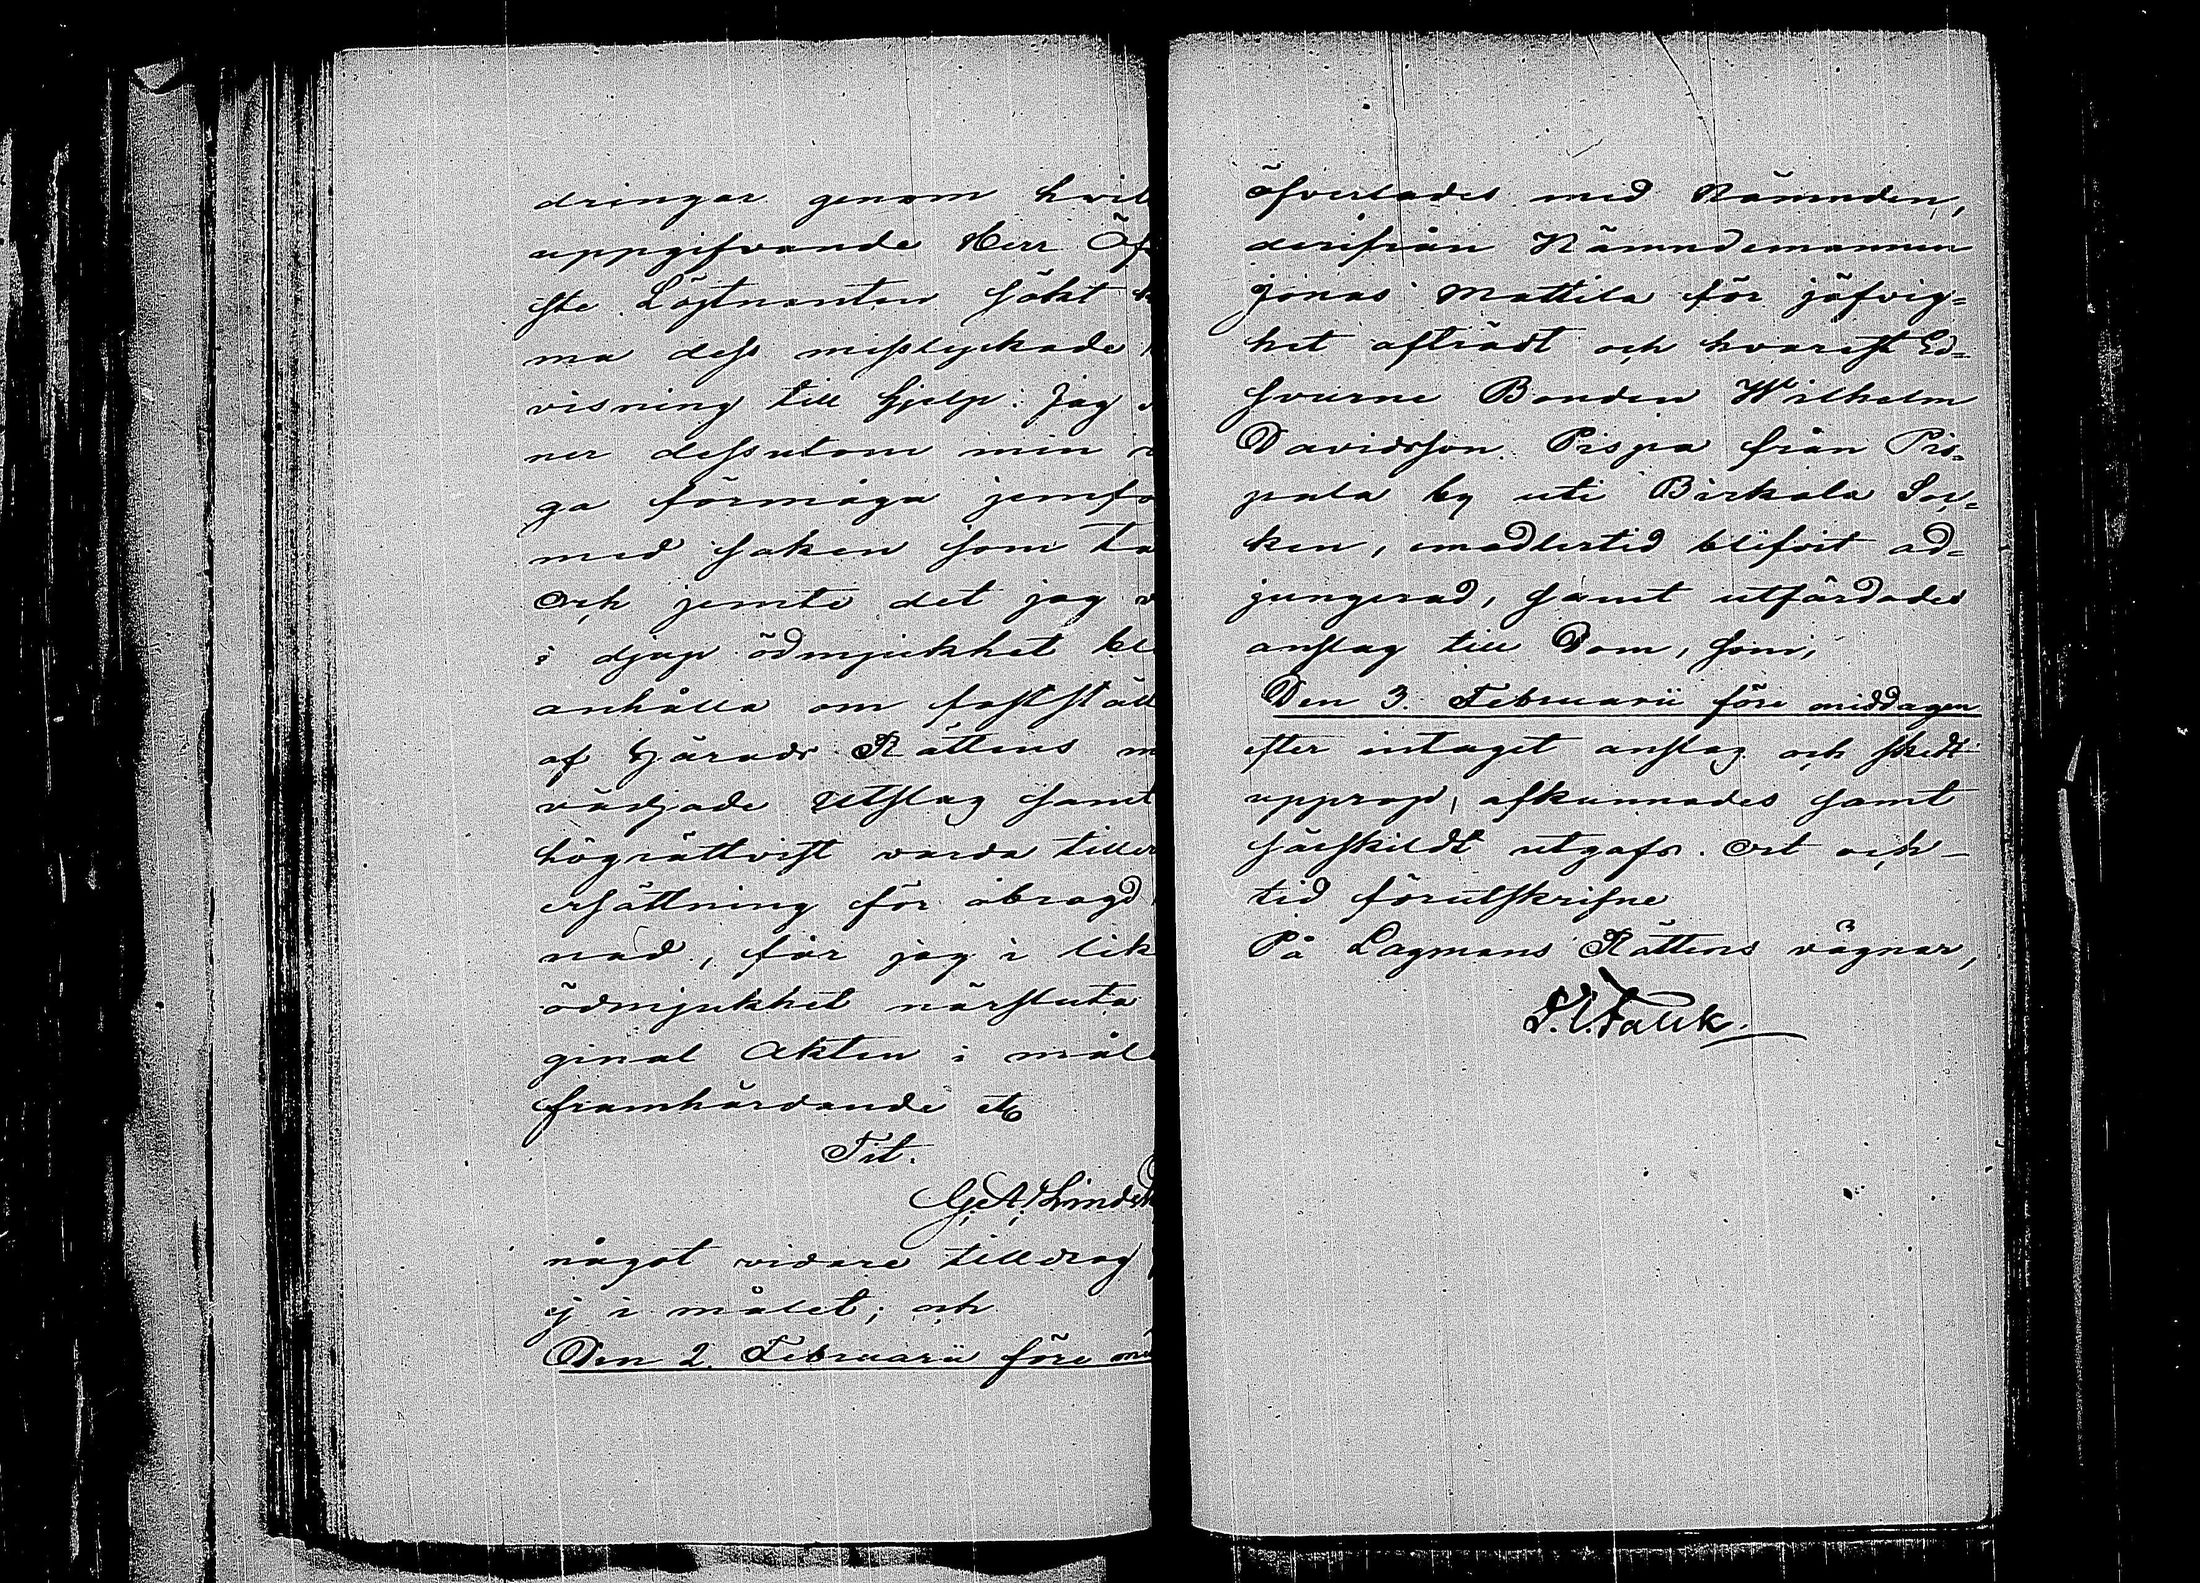 dringar genom hvil
uppgifvande Herr Öf
ste Löjtnanten sökt
ma dess misslyckade
visning till hjelp. Jag
ner dessutom min
ga förmåga jemfö
med saken som ta
Och jemte det jag
i djup ödmjukhet
anhålla om fastställ
af Härads Rättens
värdjade Utslag samt
högrättvist varda tiller
ersättning för åbragd
nad, får jag i lik
ödmjukhet närsluta
ginal Akten i mål
framhärdande etc
Tit.
G. A. Lind
något vidare tilldrog
ej i målet; och
Den 2. Februarii före mi
öfverlades med Nämnden,
derifrån Nämndemannen
Jonas Mattila för jäfvig=
het afträdt och hvarest Ed=
svurne Bonden Wilhelm
Davidsson Pispa från Pis=
pala by uti Birkala Soc=
ken, emedlertid blifvit ad=
jungerad, samt utfärdades
anslag till Dom, som,
Den 3. Februarii före middagen
efter intaget anslag och skedt
upprop, afkunnades samt
särskildt utgafs. Ort och
tid förutskrifne
På Lagmans Rättens vägnar,
Falck.